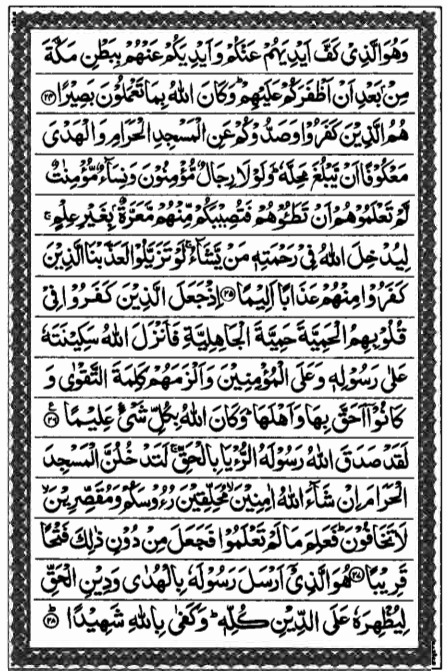 وَهُوَ الَّذِیْ كَفَّ اَیْدِیَهُمْ عَنْكُمْ وَاَیْدِیَكُمْ عَنْهُمْ بِبَطْنِ مَكَّةَ
مِنْۢ بَعْدِ اَنْ اَظْفَرَكُمْ عَلَیْهِمْ ؕ وَكَانَ اللّٰهُ بِمَا تَعْمَلُوْنَ بَصِیْرًا ﴿۲۴﴾
هُمُ الَّذِیْنَ كَفَرُوْا وَصَدُّوْكُمْ عَنِ الْمَسْجِدِ الْحَرَامِ وَالْهَدْیَ
مَعْكُوْفًا اَنْ یَّبْلُغَ مَحِلَّهٗ ؕ وَلَوْ لَا رِجَالٌ مُّؤْمِنُوْنَ وَنِسَآءٌ مُّؤْمِنٰتٌ
لَّمْ تَعْلَمُوْهُمْ اَنْ تَطَئُوْهُمْ فَتُصِیْبَكُمْ مِّنْهُمْ مَّعَرَّةٌۢ بِغَیْرِ عِلْمٍ ۚ
لِیُدْخِلَ اللّٰهُ فِیْ رَحْمَتِهٖ مَنْ یَّشَآءُ ۚ لَوْ تَزَیَّلُوْا لَعَذَّبْنَا الَّذِیْنَ
كَفَرُوْا مِنْهُمْ عَذَابًا اَلِیْمًا ﴿۲۵﴾ اِذْ جَعَلَ الَّذِیْنَ كَفَرُوْا فِیْ
قُلُوْبِهِمُ الْحَمِیَّةَ حَمِیَّةَ الْجَاهِلِیَّةِ فَاَنْزَلَ اللّٰهُ سَكِیْنَتَهٗ
عَلٰی رَسُوْلِهٖ وَعَلَی الْمُؤْمِنِیْنَ وَاَلْزَمَهُمْ كَلِمَةَ التَّقْوٰی وَ
كَانُوْۤا اَحَقَّ بِهَا وَاَهْلَهَا ؕ وَكَانَ اللّٰهُ بِكُلِّ شَیْءٍ عَلِیْمًا ﴿۲۶﴾ ع
لَقَدْ صَدَقَ اللّٰهُ رَسُوْلَهُ الرُّءْیَا بِالْحَقِّ ۚ لَتَدْخُلُنَّ الْمَسْجِدَ
الْحَرَامَ اِنْ شَآءَ اللّٰهُ اٰمِنِیْنَ ۙ مُحَلِّقِیْنَ رُءُوْسَكُمْ وَمُقَصِّرِیْنَ ۙ
لَا تَخَافُوْنَ ؕ فَعَلِمَ مَا لَمْ تَعْلَمُوْا فَجَعَلَ مِنْ دُوْنِ ذٰلِكَ فَتْحًا
قَرِیْبًا ﴿۲۷﴾ هُوَ الَّذِیْۤ اَرْسَلَ رَسُوْلَهٗ بِالْهُدٰی وَدِیْنِ الْحَقِّ
لِیُظْهِرَهٗ عَلَی الدِّیْنِ كُلِّهٖ ؕ وَكَفٰی بِاللّٰهِ شَهِیْدًا ﴿۲۸﴾ ؕ